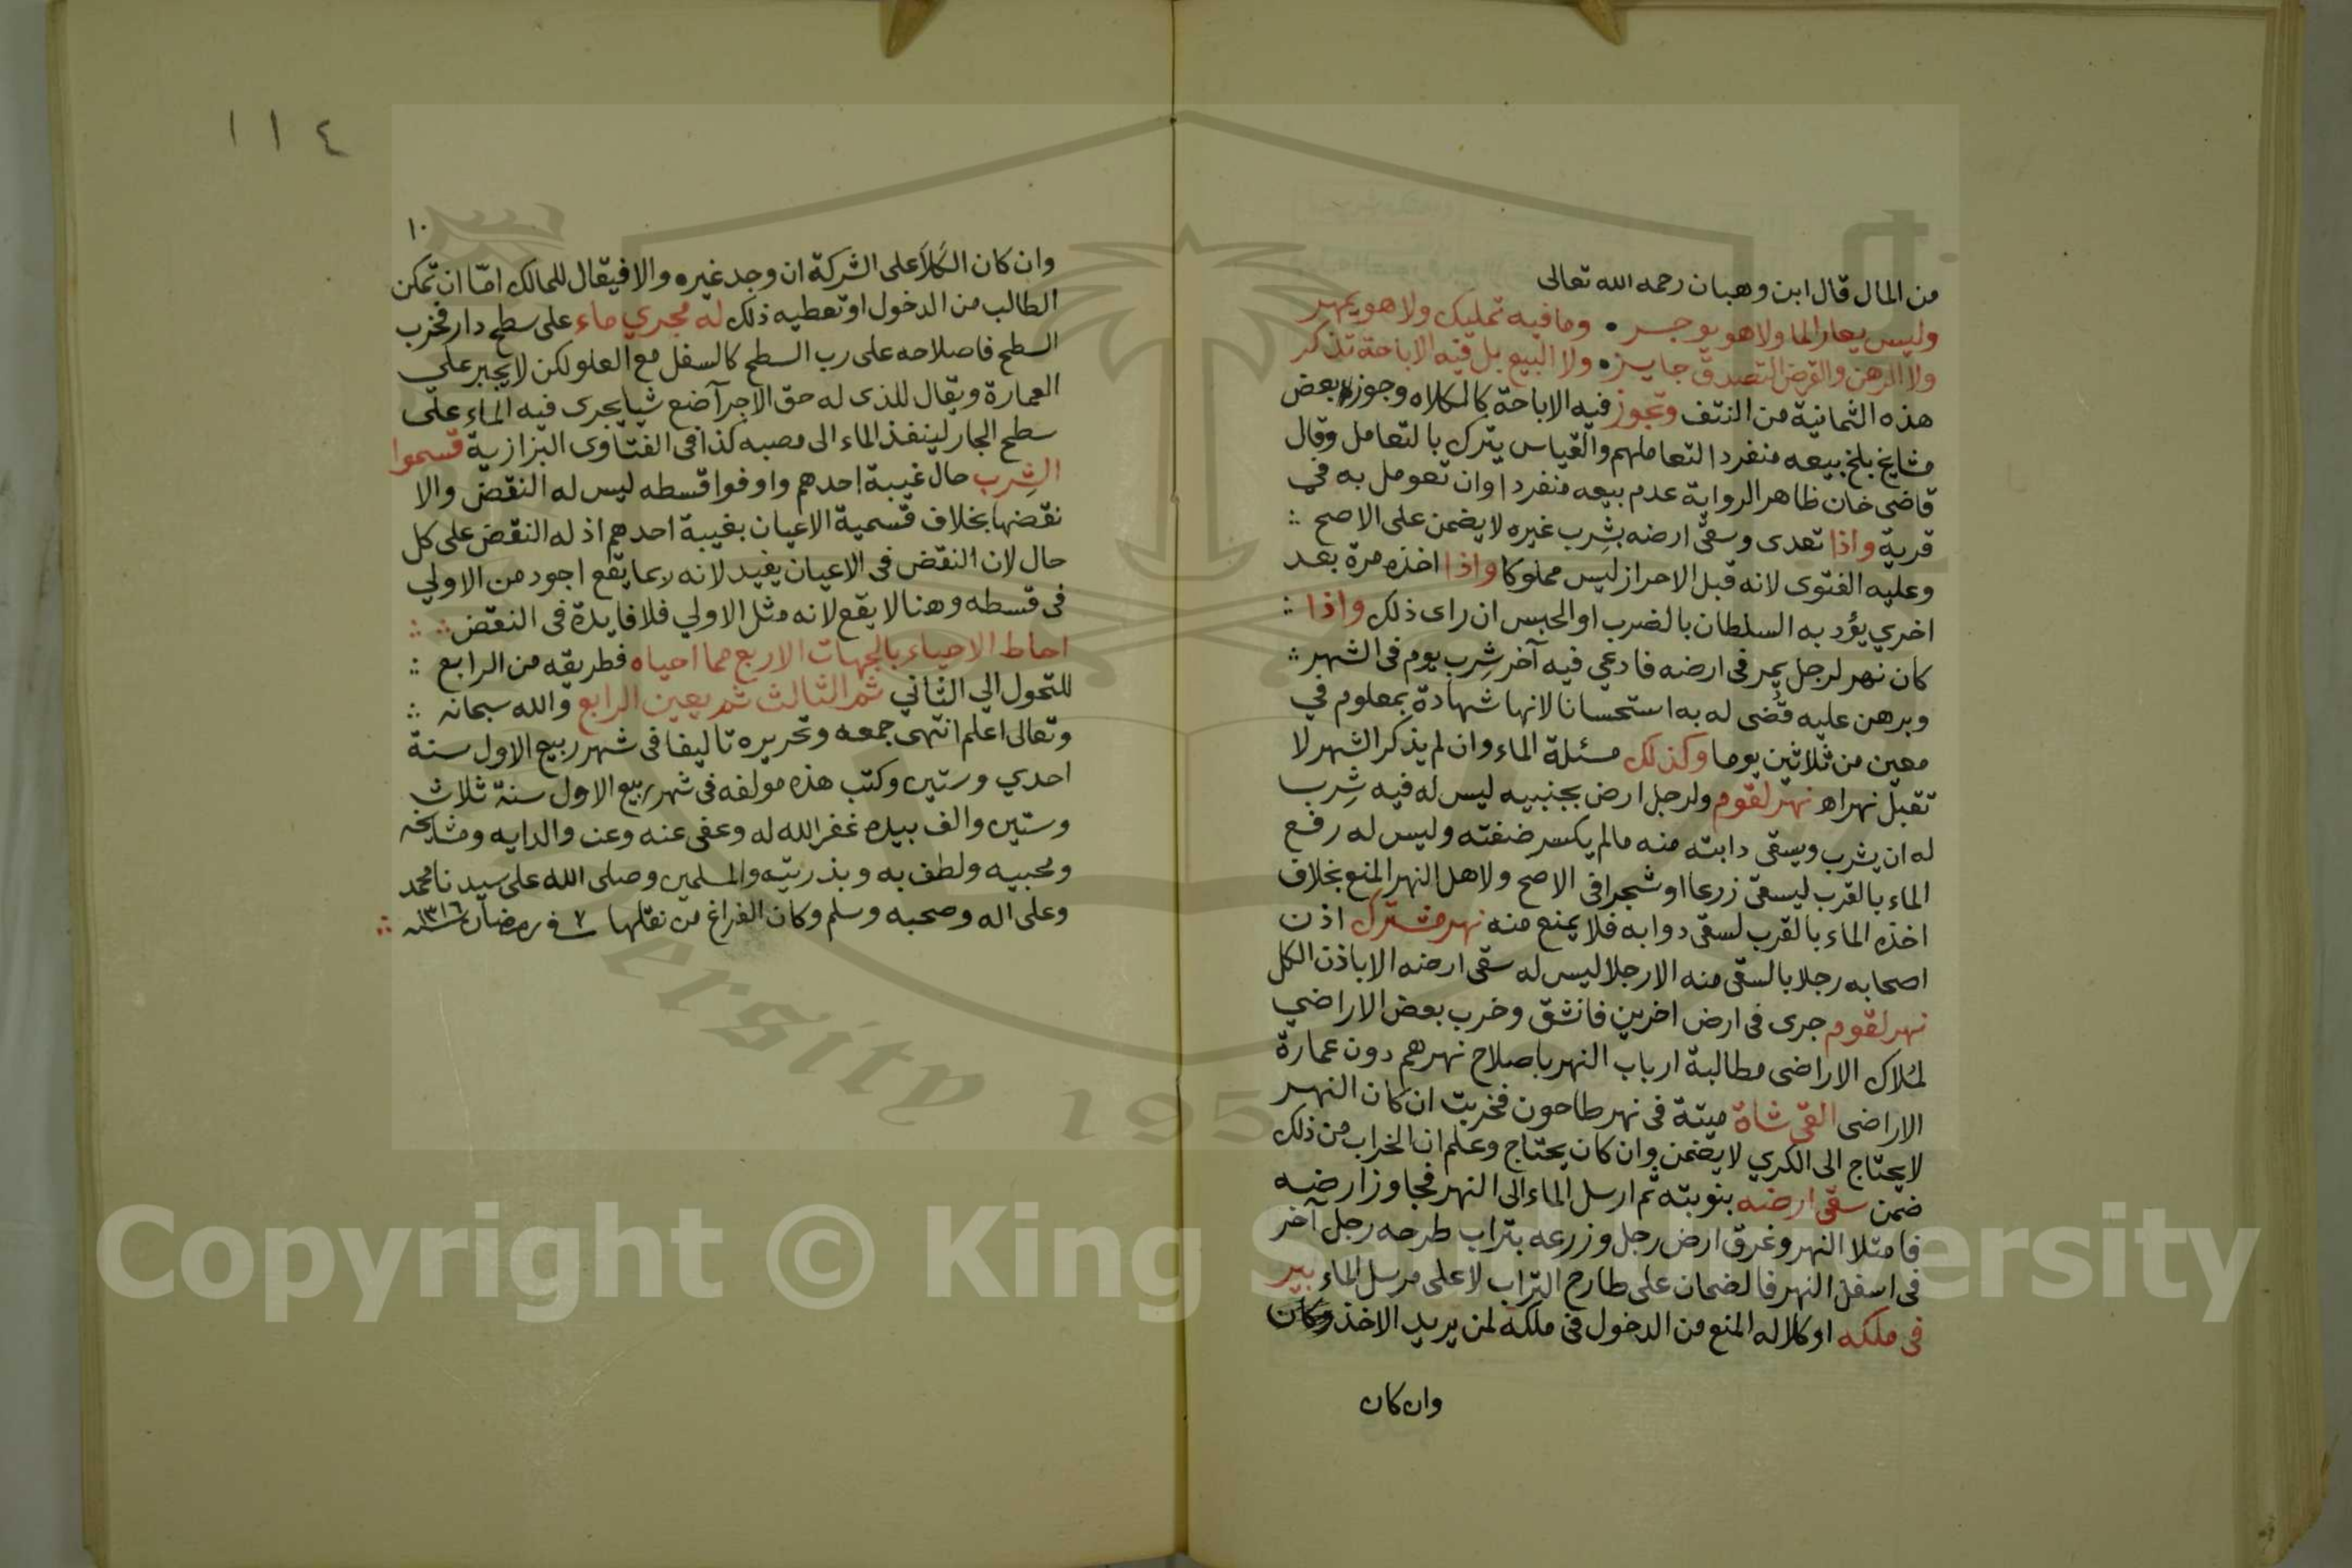 من المال قال ابن وهبان رحمه الله تعالى
وليس يعار الما ولا هو يوجر • وما فيه تمليك ولا هو يمهر
ولا الرهن والقرض التصدق جايز • ولا البيع بل فيه الاباحة تذكر
هذه الثمانية من النتف وتجوز فيه الاباحة كالكلاه وجوز بعض
مشايخ بلخ بيعه منفردا لتعاملهم والقياس يترك بالتعامل وقال
قاضى خان ظاهر الرواية عدم بيعه منفردا وان تعومل به في
قرية واذا تعدى وسقى ارضه بشِرب غيره لا يضمن على الاصح
وعليه الفتوى لانه قبل الاحراز ليس مملوكا واذا اخذه مرة بعد
اخري يؤدبه السلطان بالضرب او الحبس ان راى ذلك واذا
كان نهر لرجل يمر فى ارضه فادعي فيه آخر شِرب يوم فى الشهر
وبرهن عليه قُضى له به استحسانا لانها شهادة بمعلوم في
معين من ثلاثين يوما وكذلك مسئلة الماء وان لم يذكر الشهر لا
تقبل نهراه نهر لقوم ولرجل ارض بجنبيه ليس له فيه شِرب
له ان يشرب ويسقى دابته منه مالم يكسر ضفته وليس له رفع
الماء بالقرب ليسقى زرعا او شجرا فى الاصح ولاهل النهر المنع بخلاف
اخذه الماء بالقرب لسقى دوابه فلا يمنع منه نهر مشترك اذن
اصحابه رجلا بالسقى منه الا رجلا ليس له سقى ارضه الا باذن الكل
نهر لقوم جرى فى ارض اخرين فانشق وخرب بعض الاراضي
لمُلاك الاراضى مطالبة ارباب النهر باصلاح نهرهم دون عمارة
الاراضى القى شاة ميتة فى نهر طاحون فخربت ان كان النهر
لا يحتاج الى الكري لا يضمن وان كان يحتاج وعلم ان الخراب من ذلك
ضمن سقى ارضه بنوبته ثم ارسل الماء الى النهر فجاوز ارضه
فامتلا النهر وغرق ارض رجل وزرعه بتراب طرحه رجل آخر
فى اسفل النهر فالضمان على طارح التراب لا على مرسل الماء بير
فى ملكه او كلا له المنع من الدخول فى ملكه لمن يريد الاخذ وكان
وان كان
١١٤
١٠
وان كان الكَلأ على الشركة ان وجد غيره والا فيقال للمالك امّا ان تمكن
الطالب من الدخول او تعطيه ذلك له مجري ماء على سطح دار فخرب
السطح فاصلاحه على رب السطح كالسفل مع العلو لكن لا يجبر علي
العمارة ويقال للذى له حق الاجرآ ضع شيا يجرى فيه الماء على
سطح الجار لينفذ الماء الى مصبه كذا فى الفتاوى البزازية قسموا
الشِرب حال غيبة احدهم واوفوا قسطه ليس له النقض والا
نقضها بخلاف قسمية الاعيان بغيبة احدهم اذ له النقض على كل
حال لان النقض فى الاعيان يفيد لانه ربما يقع اجود من الاولي
فى قسطه وهنا لا يقع لانه مثل الاولي فلا فايدة فى النقض
احاط الاحياء بالجهات الاربع مما احياه فطريقه من الرابع
للتحول الي الثاني ثم الثالث ثم يعين الرابع والله سبحانه
وتعالى اعلم انتهى جمعه وتحريره تاليفا فى شهر ربيع الاول سنة
احدي وستين وكتب هذه مولفه فى شهر ربيع الاول سنة ثلاث
وستين والف بيده غفر الله له وعفى عنه وعن والدايه ومشايخه
ومحبيه ولطف به وبذريته والمسلمين وصلى الله على سيدنا محمد
وعلى اله وصحبه وسلم وكان الفراغ من نقلها ٧ فى رمضان سنة ١٣١٦
Copyright © King Saud University
ersity 195